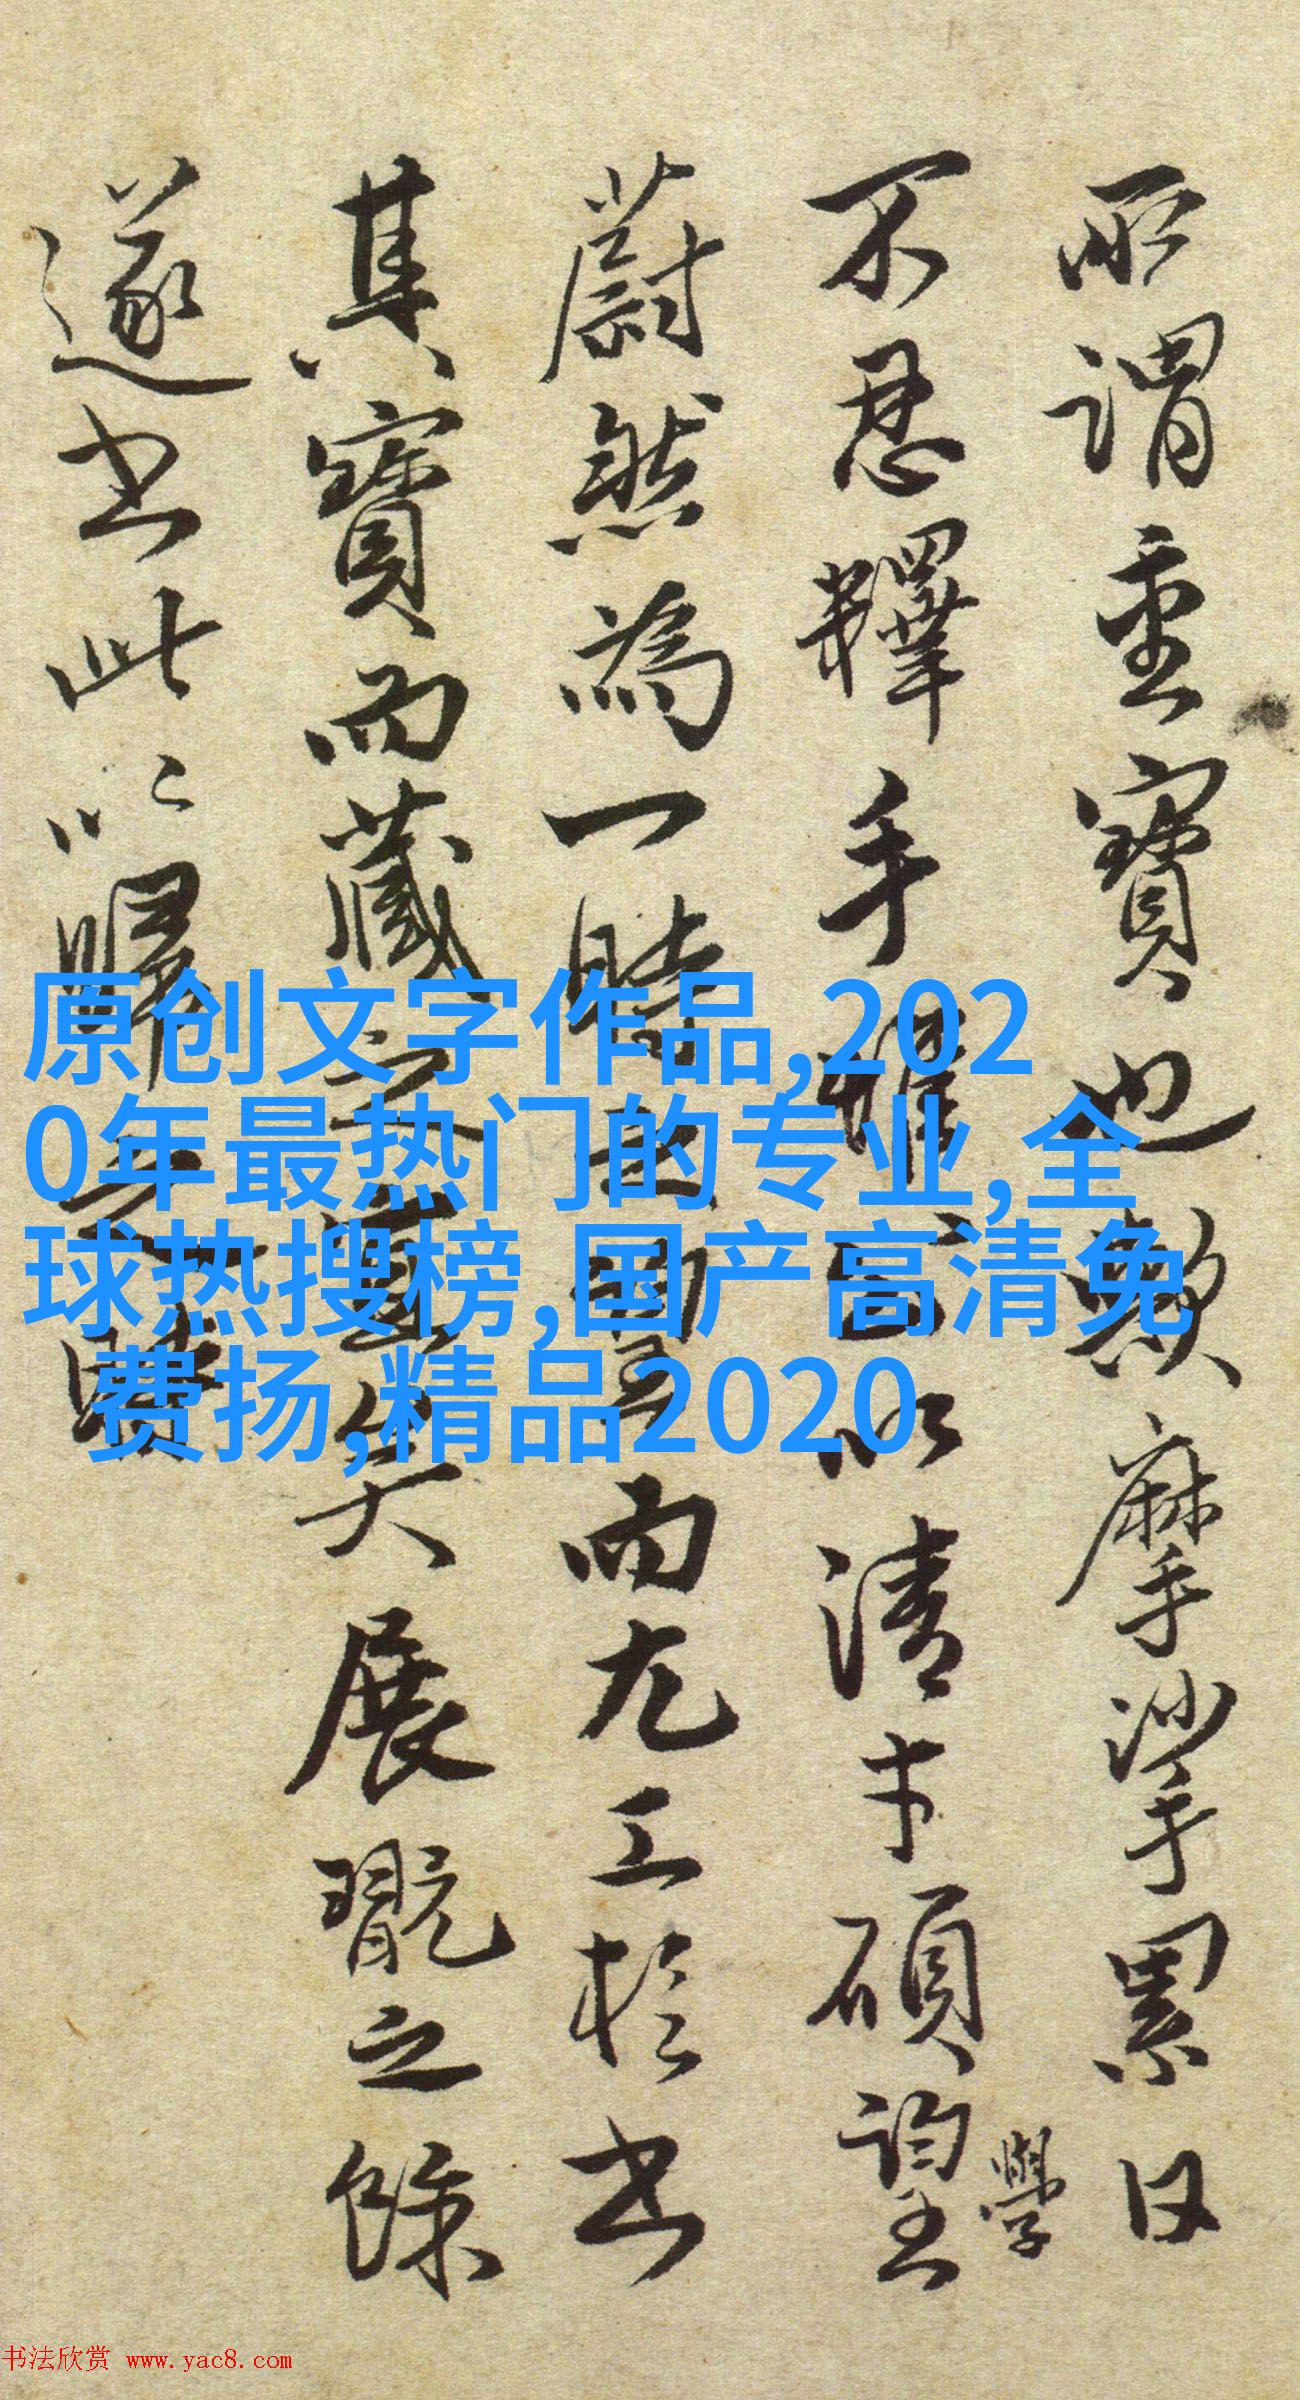 所謂重寶也歟摩挲累日
不忍釋手以清才碩望
學
蔚然為一時而尤工於書
其寶而藏之宜矣展翫之餘
遂书此以歸之
原创文字作品,202
0年最热门的专业,全
球热搜榜,国产高清免
费扬,精品2020
书法欣赏 www.yac8.com